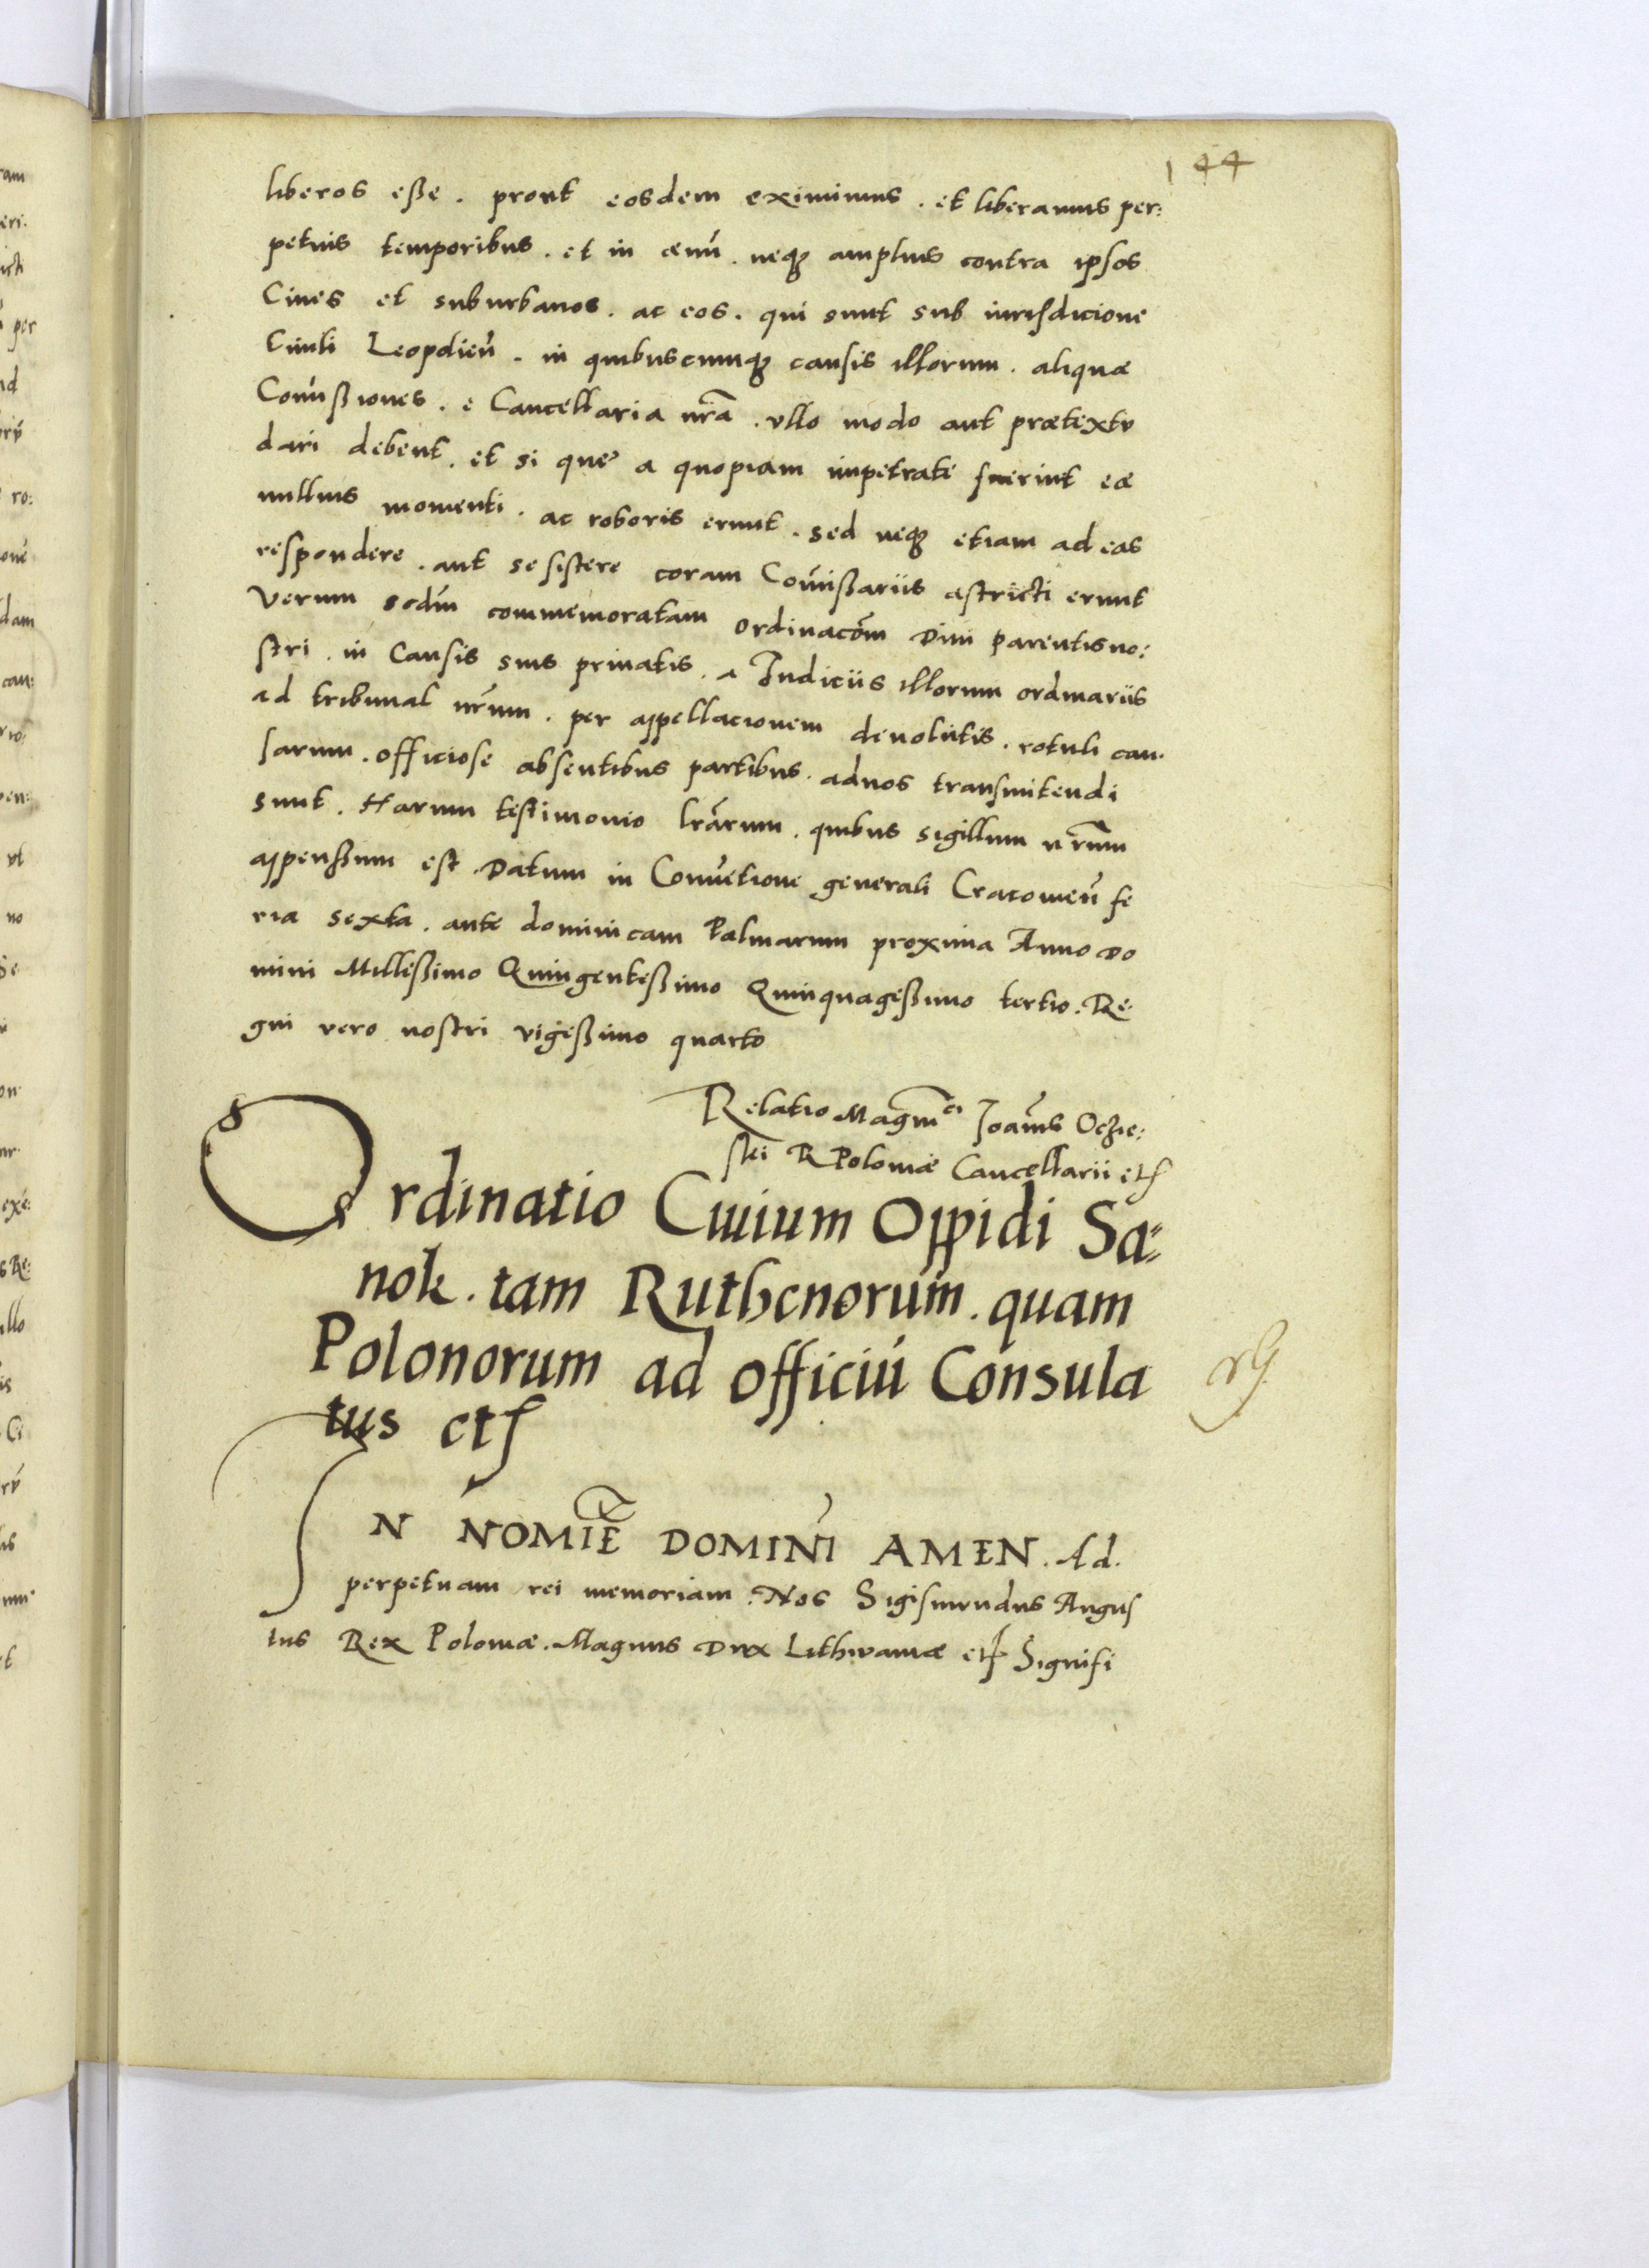 144
liberos eße . prout eosdem eximimus . et liberamus per:
petuis temporibus . et in ævū . neqꝫ amplius contra ipsos
Ciues et suburbanos . ac eos . qui sunt sub iurisdicione
Ciuili Leopolień . in quibuscumqꝫ causis illorum . aliquæ
Com̄ißiones . e Cancellaria nr̄a . vllo modo aut prætextu
dari debent . et si que a quopiam impetrate fuerint eæ
nullius momenti . ac roboris erunt . sed neqꝫ etiam ad eas
respondere . aut se sistere coram Com̄ißariis astricti erunt
Verum scdm̄ commemoratam ordinacōm Diui parentis no:
stri . in Causis suis priuatis . a Iudiciis illorum ordinariis
ad tribunal nr̄um . per appellacionem deuolutis . rotuli cau.
sarum . officiose absentibus partibus . ad nos transmitendi
sunt . Harum testimonio lr̄arum . quibus sigillum nr̄um
appensum est . Datum in Conuētione generali Cracouień fe
ria sexta . ante dominicam Palmarum proxima Anno Do
mini Milleßimo Quingenteßimo Quinquageßimo tertio . Re.
gni vero nostri vigeßimo quarto
Relatio Magnīci Joānis Oczie:
ski R Poloniæ Cancellarii etc
Ordinatio Ciuium Oppidi Sa=
nok . tam Ruthenorum . quam
Polonorum ad officiū Consula
tus etc
IN NOMIE DOMINI AMEN . Ad .
perpetuam rei memoriam . Nos Sigismundus Augus
tus Rex Poloniæ . Magnus Dux Lithuaniæ etc Signifi